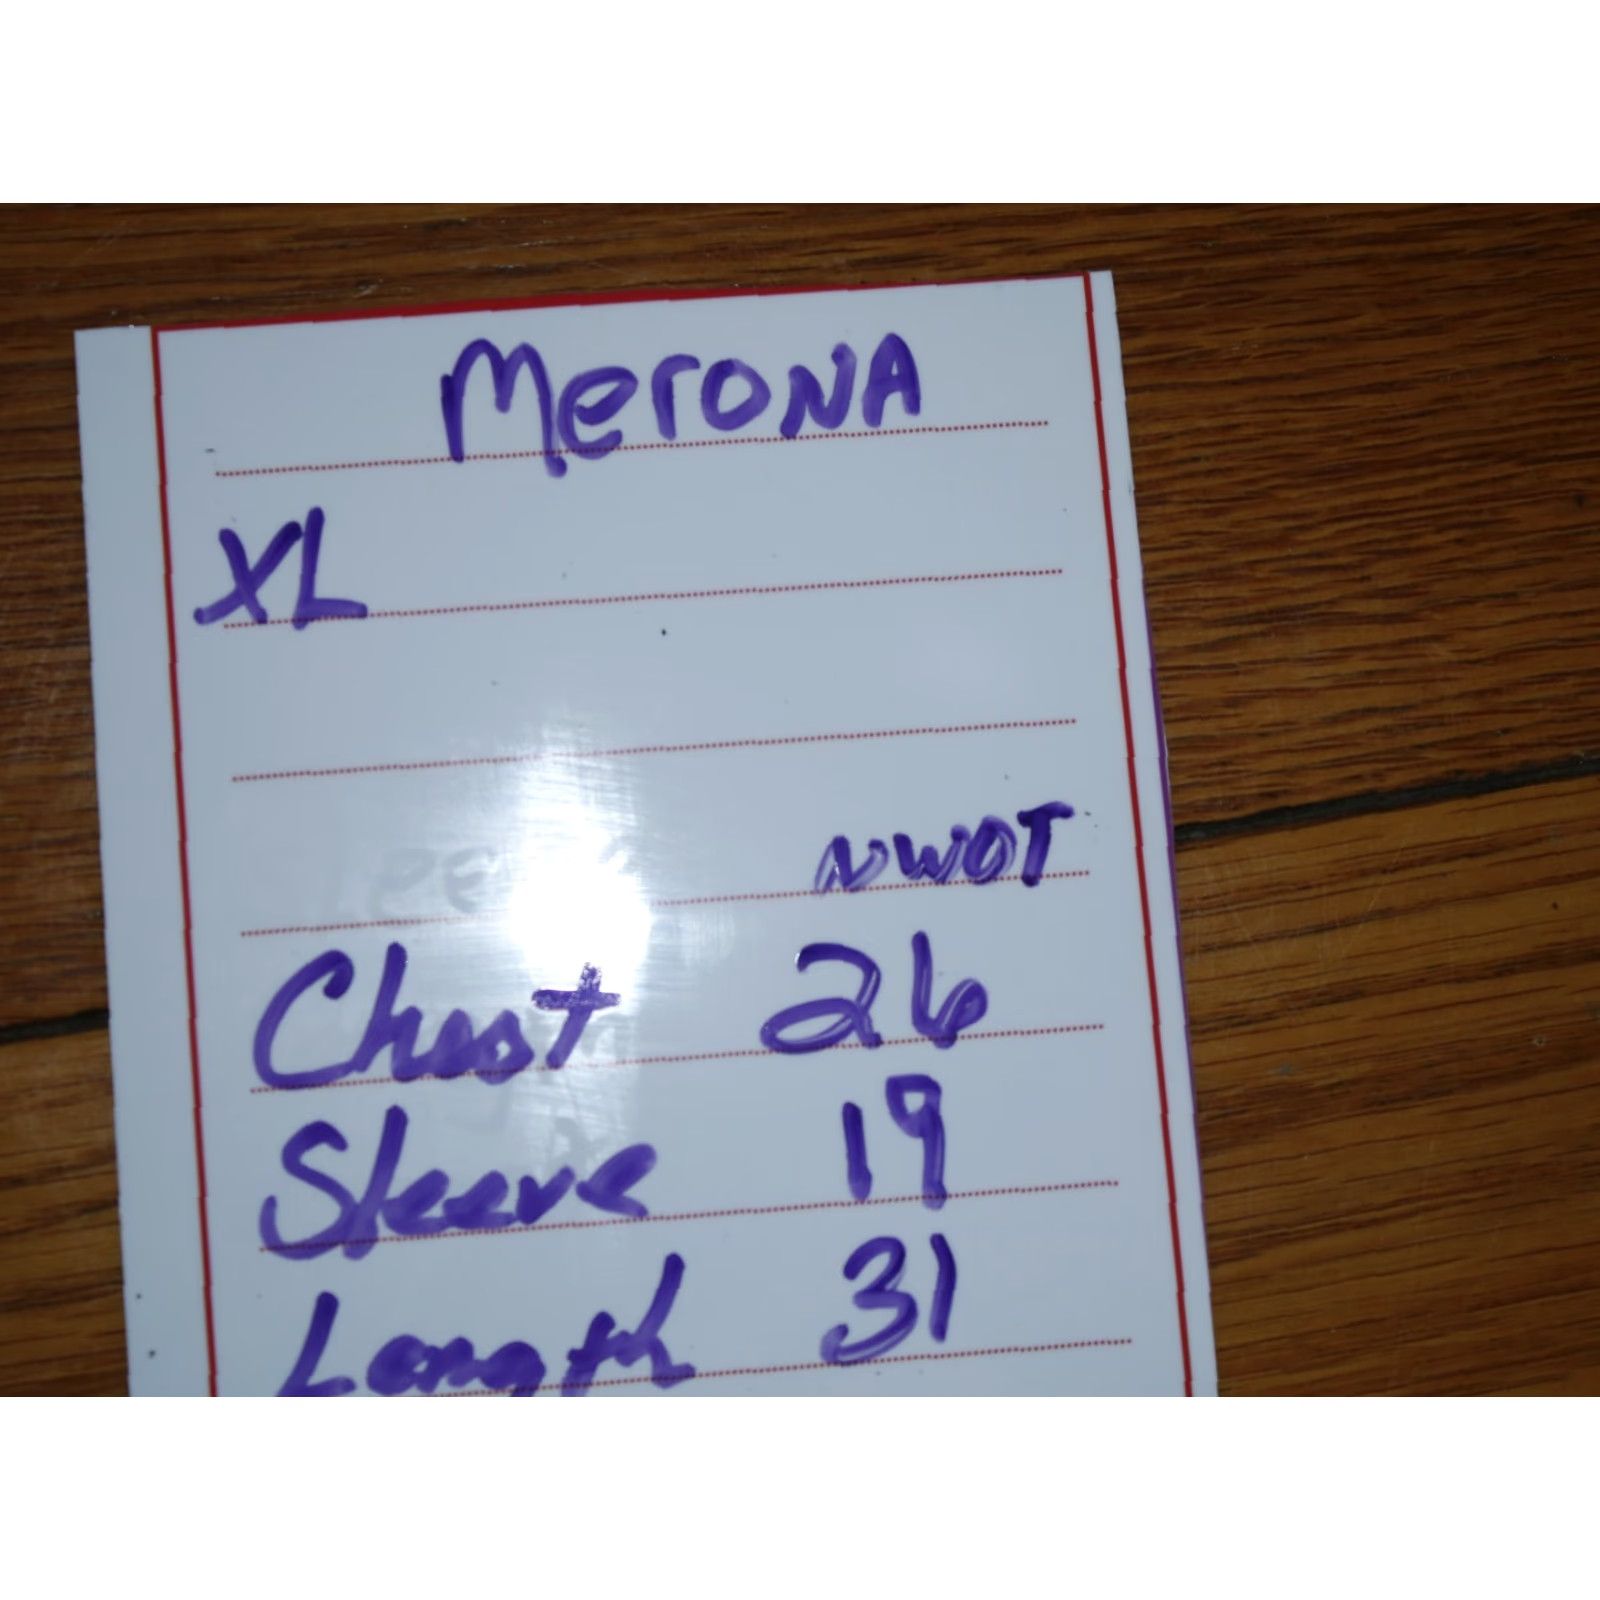 MeroNA
XL
NWOT
Chest 26
Sleeve 19
Length 31